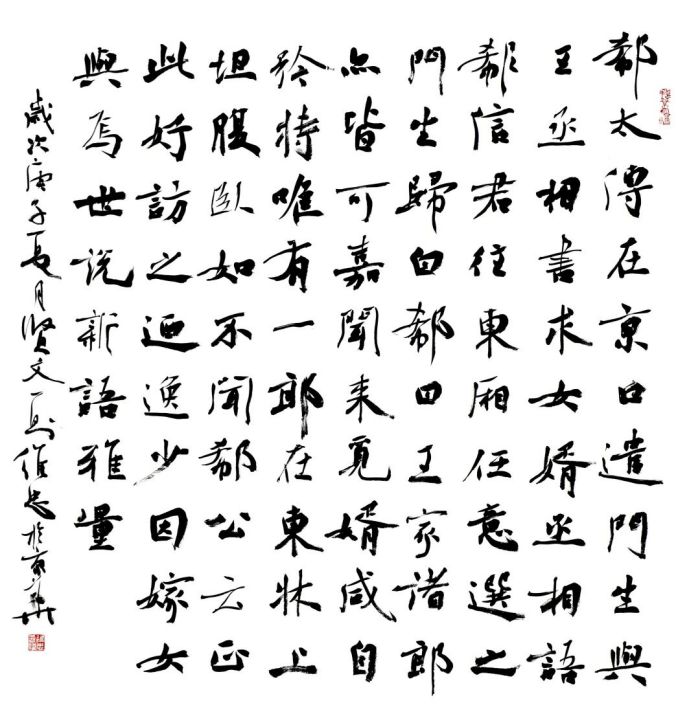 郗太傅在京口遣門生與
王丞相書求女婿丞相語
郗信君往東厢任意選之
門生歸白郗曰王家諸郎
亦皆可嘉聞来覓婿咸自
矜持唯有一郎在東牀上
坦腹臥如不聞郗公云正
此好訪之迺逸少因嫁女
與焉世説新語雅量
歲次庚子夏月賢文維忠於京華